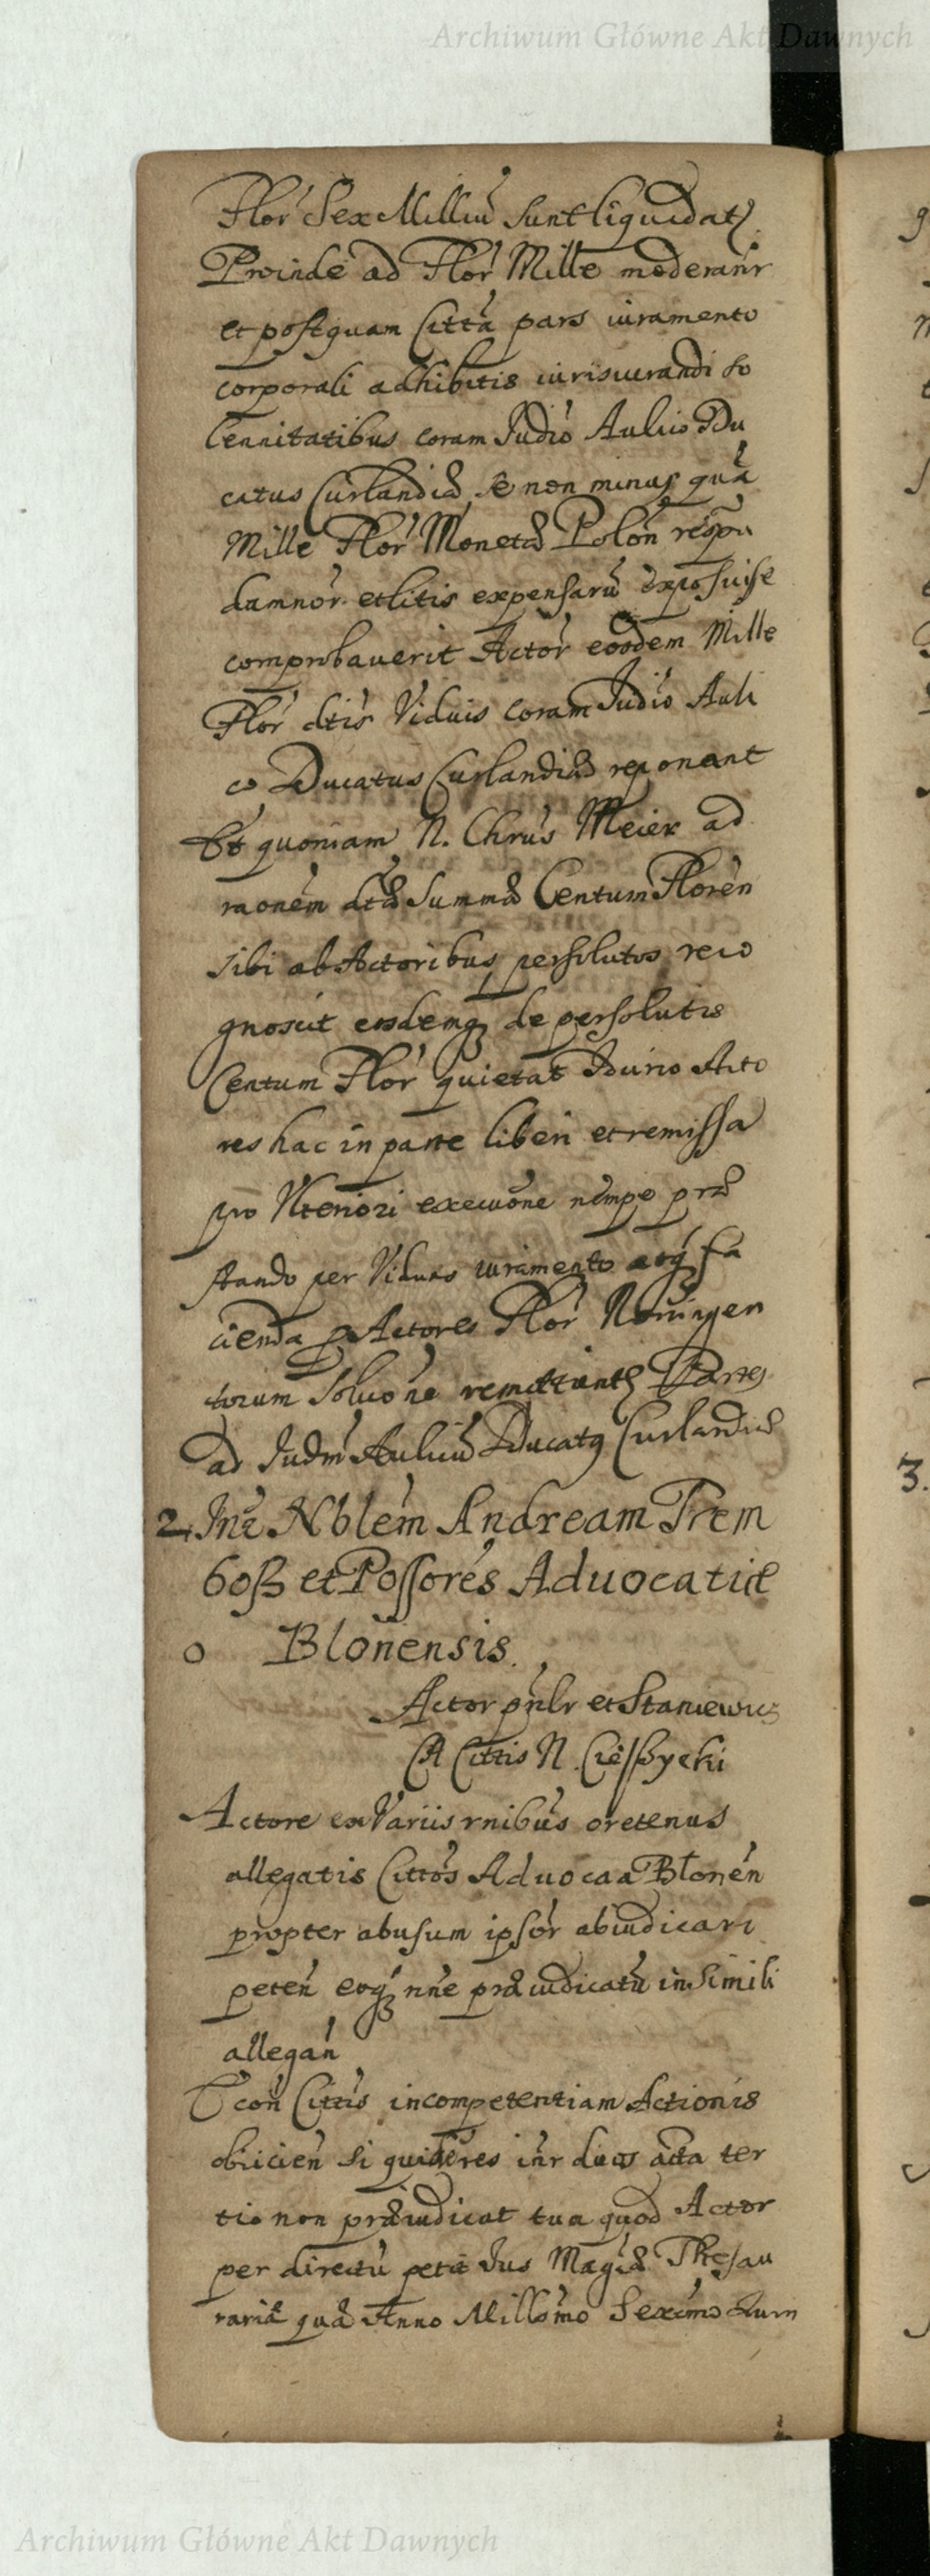 Archiwum Główne Akt Dawnych
Flor Sex Milliu sunt liquidatę
Proinde ad Flor Mille moderanr
et postquam Citta pars iuramento
corporali adhibitis iurisiurandi so
lennitatibus coram Iudio Aulico Du
catus Curlandiæ se non minus quā
Mille Flor Monetæ Polon respu
damnor et litis expensaru exposuise
comprobauerit Actor eosdem Mille
Flor dtis Viduis coram Iudio Auli
co Ducatus Curlandiæ reponant
Et quoniam N. Chrus Meier ad
raonem dtæ Summæ Centum Floren
sibi ab Actoribus persolutos reco
gnoscit eosdemq de persolutis
Centum Flor quietat Iduirco Acto
res hac in parte liberi et remissa
pro Vteriori execuone nempe præ
stando per Viduas iuramento atq fa
cienda p Actores Flor Noningen
torum Soluone remittuntę Partes
ad Iudm Auliču Ducatq Curlandiæ
2. Int Nblem Andream Trem
boß et Poßores Aduocatiæ
o Blonensis.
Actor pnlr et Staniewicz
A Cittis N. Cießycki
Actore ex Variis rnibus oretenus
allegatis Cittos Aduocaa Blonen
propter abusum ipsor abiudicari
peten eoq nne præiudicatu in Simili
allegan
E con Cittis incompetentiam Actionis
obiicien si quidē res inr duos acta ter
tio non præiudicat tua quod Actor
per directu petit Ius Magiæ Thesau
rariæ quæ Anno Millsimo Sexcmo
Archiwum Główne Akt Dawnych